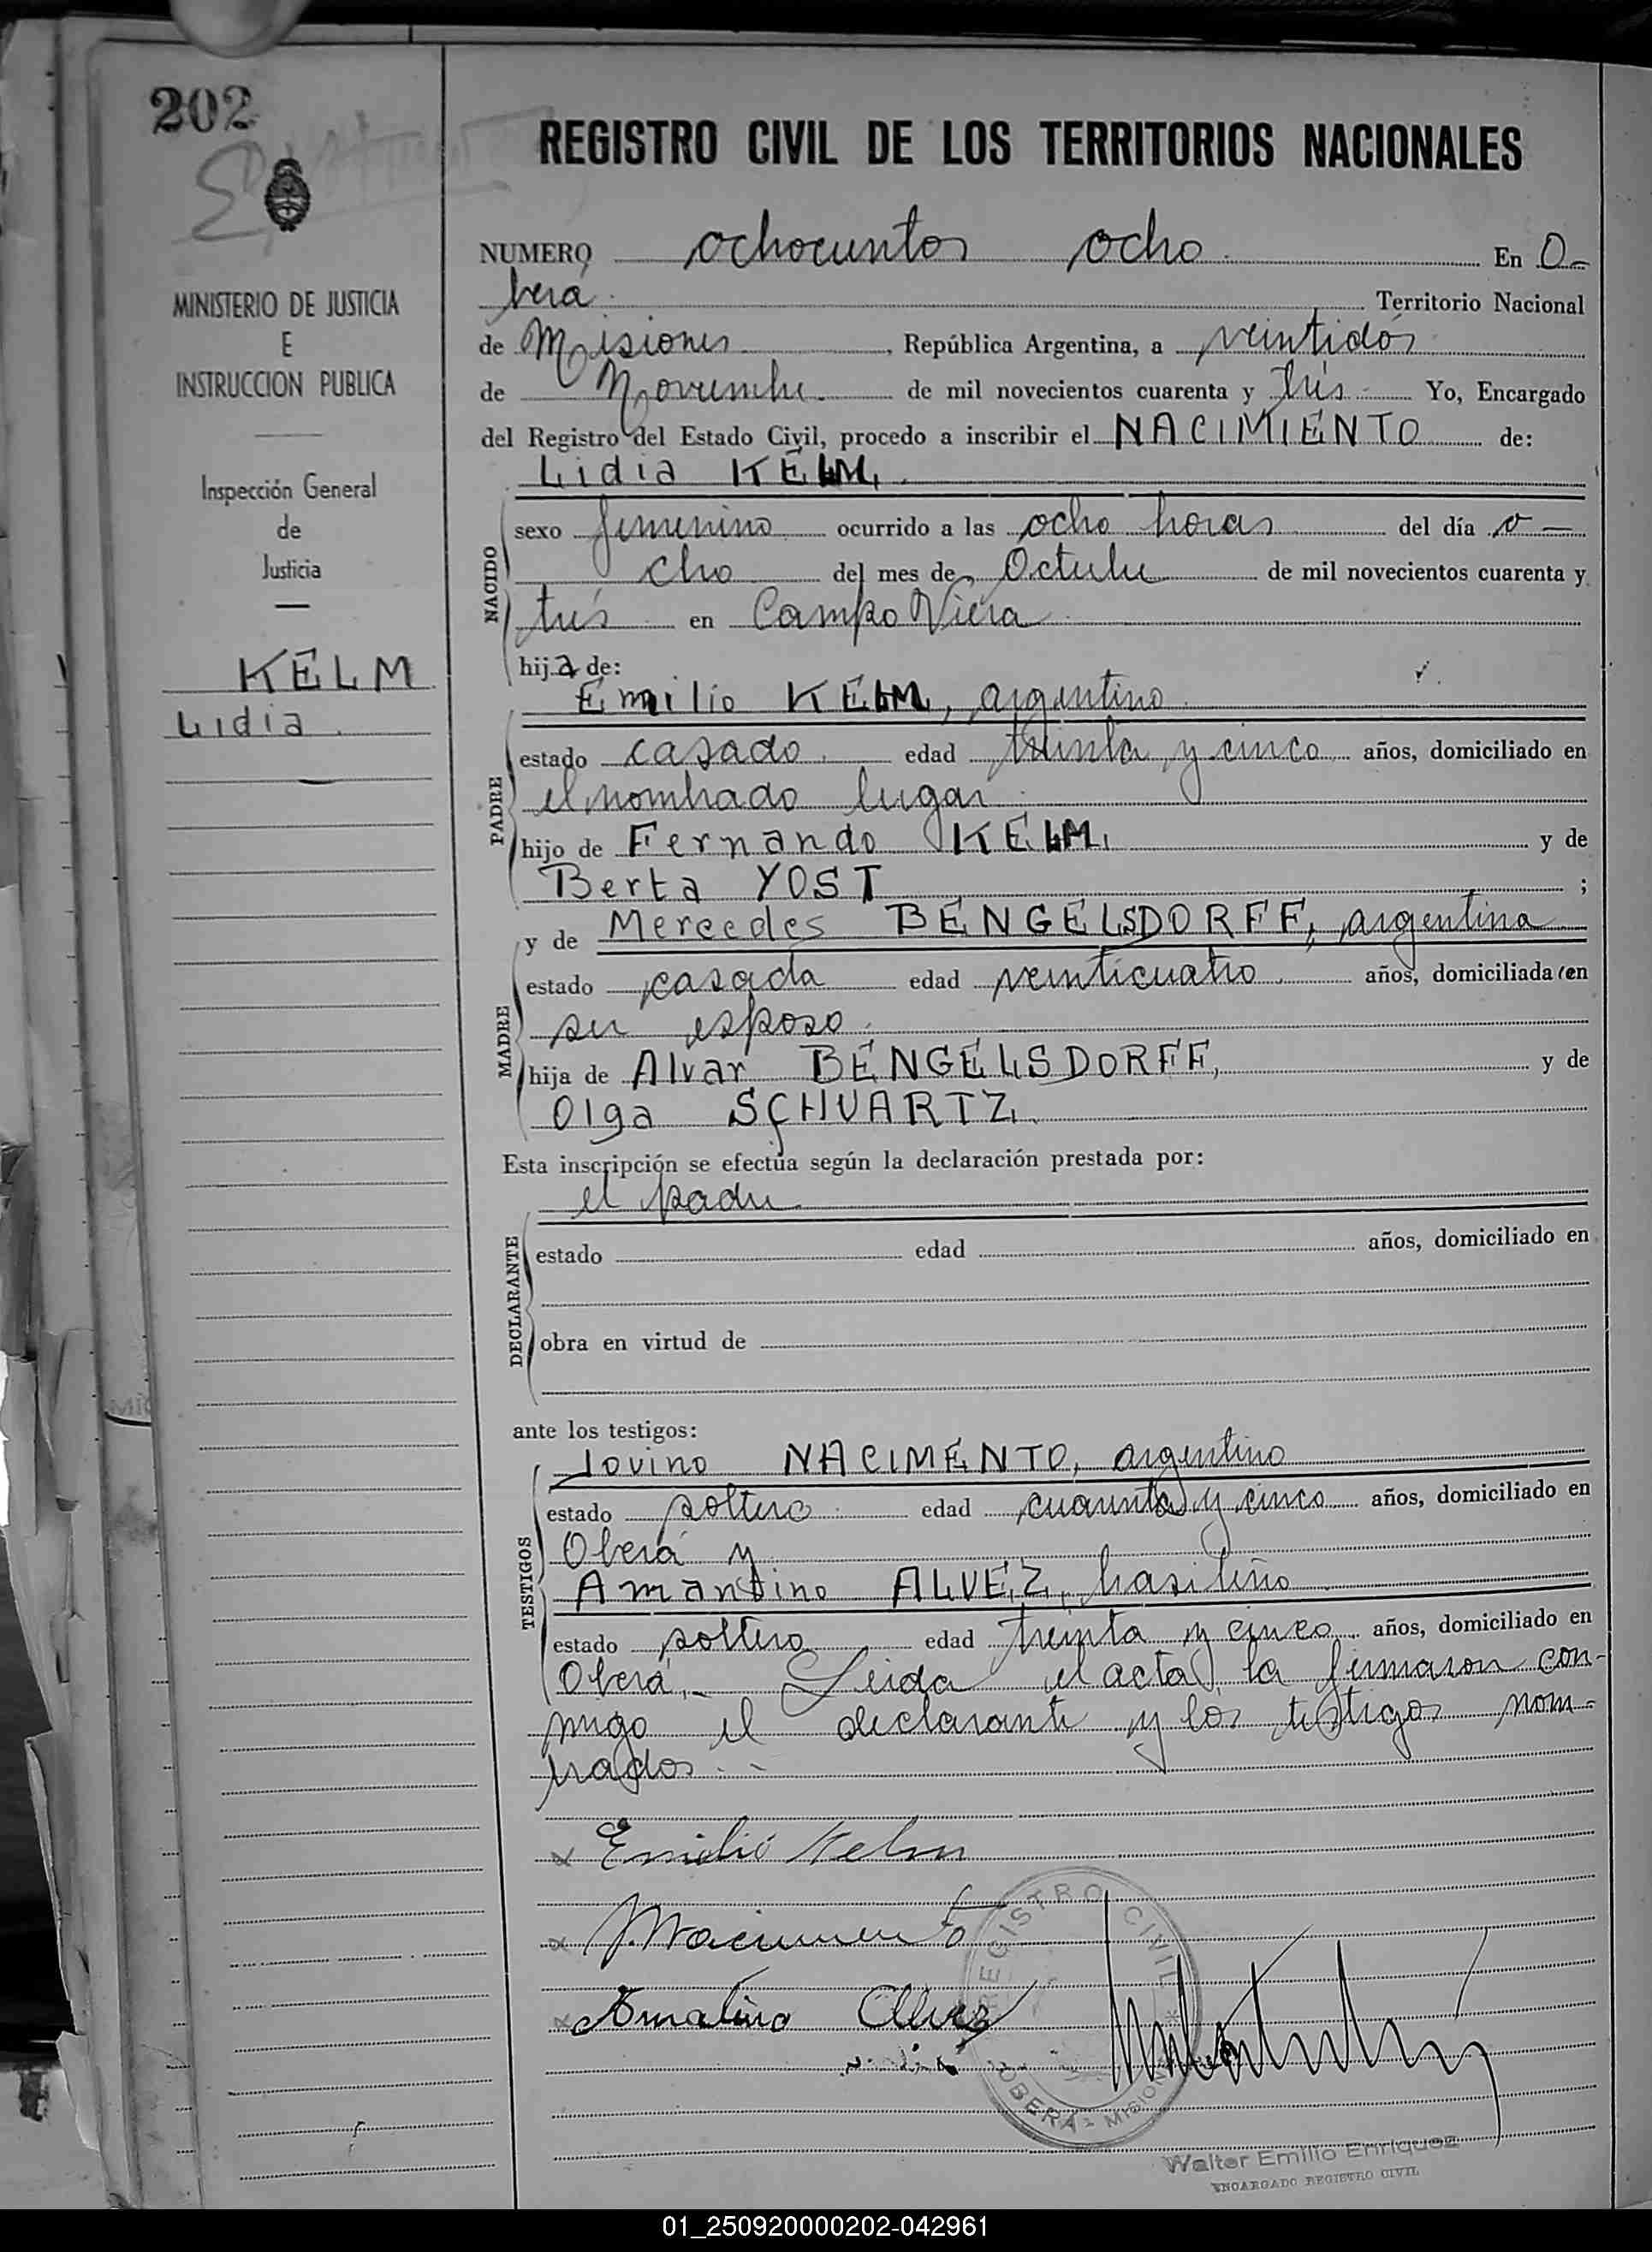 202
REGISTRO CIVIL DE LOS TERRITORIOS NACIONALES
MINISTERIO DE JUSTICIA
E
INSTRUCCION PUBLICA
Inspección General
de
Justicia
KELM
Lidia
NUMERO ochocientos ocho En O-
berá Territorio Nacional
de Misiones, República Argentina, a veintidós
de Noviembre de mil novecientos cuarenta y tres Yo, Encargado
del Registro del Estado Civil, procedo a inscribir el NACIMIENTO de:
Lidia KELM.
NACIDO
sexo femenino ocurrido a las ocho horas del día o-
cho del mes de Octubre de mil novecientos cuarenta y
trés en Campo Viera
hija de:
Emilio KELM, argentino
PADRE
estado casado edad treinta y cinco años, domiciliado en
el nombrado lugar
hijo de Fernando KELM, y de
Berta YOST ;
y de Mercedes BENGELSDORFF, argentina
MADRE
estado casada edad veinticuatro años, domiciliada en
su esposo
hija de Alvar BENGELSDORFF, y de
Olga SCHVARTZ.
Esta inscripción se efectúa según la declaración prestada por:
el padre
DECLARANTE
estado edad años, domiciliado en
obra en virtud de
ante los testigos:
Jovino NACIMENTO, argentino
TESTIGOS
estado soltero edad cuarenta y cinco años, domiciliado en
Oberá y
Amantino ALVEZ, brasileño
estado soltero edad treinta y cinco años, domiciliado en
Oberá.- Leida el acta, la firmaron con-
migo el declarante y los testigos nom-
brados.-
x Emilio Kelm
x J. Nacimento
x Amatino Alvez
REGISTRO CIVIL
OBERA - MISIONES
Walter Emilio Enriquez
ENCARGADO REGISTRO CIVIL
01_250920000202-042961